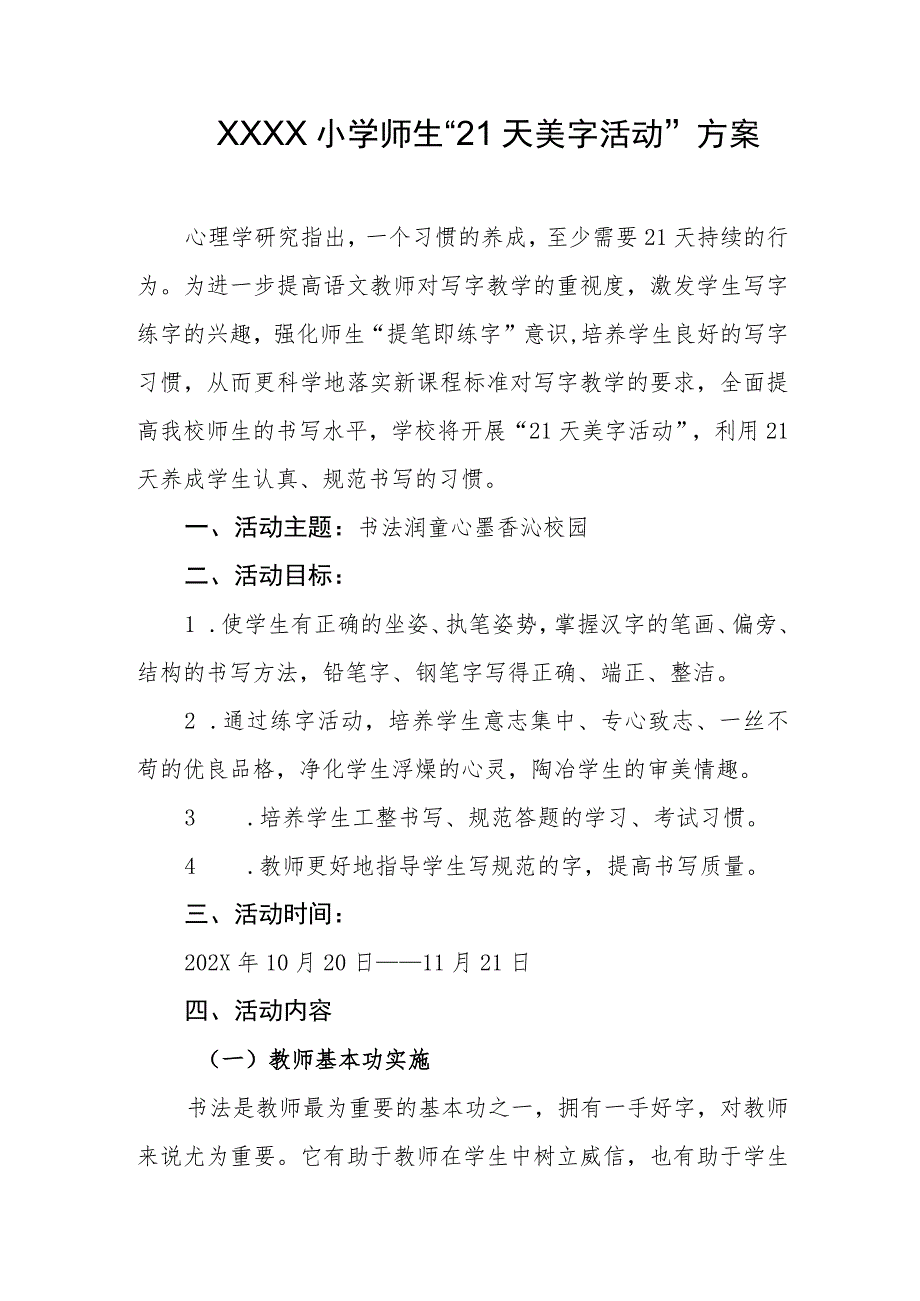 XXXX 小学师生“21 天美字活动” 方案
心理学研究指出，一个习惯的养成，至少需要 21 天持续的行
为。为进一步提高语文教师对写字教学的重视度，激发学生写字
练字的兴趣，强化师生“提笔即练字”意识,培养学生良好的写字
习惯，从而更科学地落实新课程标准对写字教学的要求，全面提
高我校师生的书写水平，学校将开展“21 天美字活动”，利用 21
天养成学生认真、规范书写的习惯。
一、活动主题：书法润童心墨香沁校园
二、活动目标：
1 .使学生有正确的坐姿、执笔姿势，掌握汉字的笔画、偏旁、
结构的书写方法，铅笔字、钢笔字写得正确、端正、整洁。
2 .通过练字活动，培养学生意志集中、专心致志、一丝不
苟的优良品格，净化学生浮燥的心灵，陶冶学生的审美情趣。
3 .培养学生工整书写、规范答题的学习、考试习惯。
4 .教师更好地指导学生写规范的字，提高书写质量。
三、活动时间：
202X 年 10 月 20 日——11 月 21 日
四、活动内容
（一）教师基本功实施
书法是教师最为重要的基本功之一，拥有一手好字，对教师
来说尤为重要。它有助于教师在学生中树立威信，也有助于学生